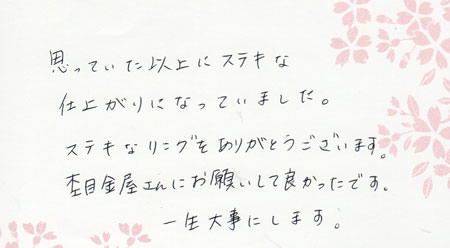 思っていた以上にステキな
仕上がりになっていました。
ステキなリングをありがとうございます。
杢目金屋さんにお願いして良かったです。
一生大事にします。